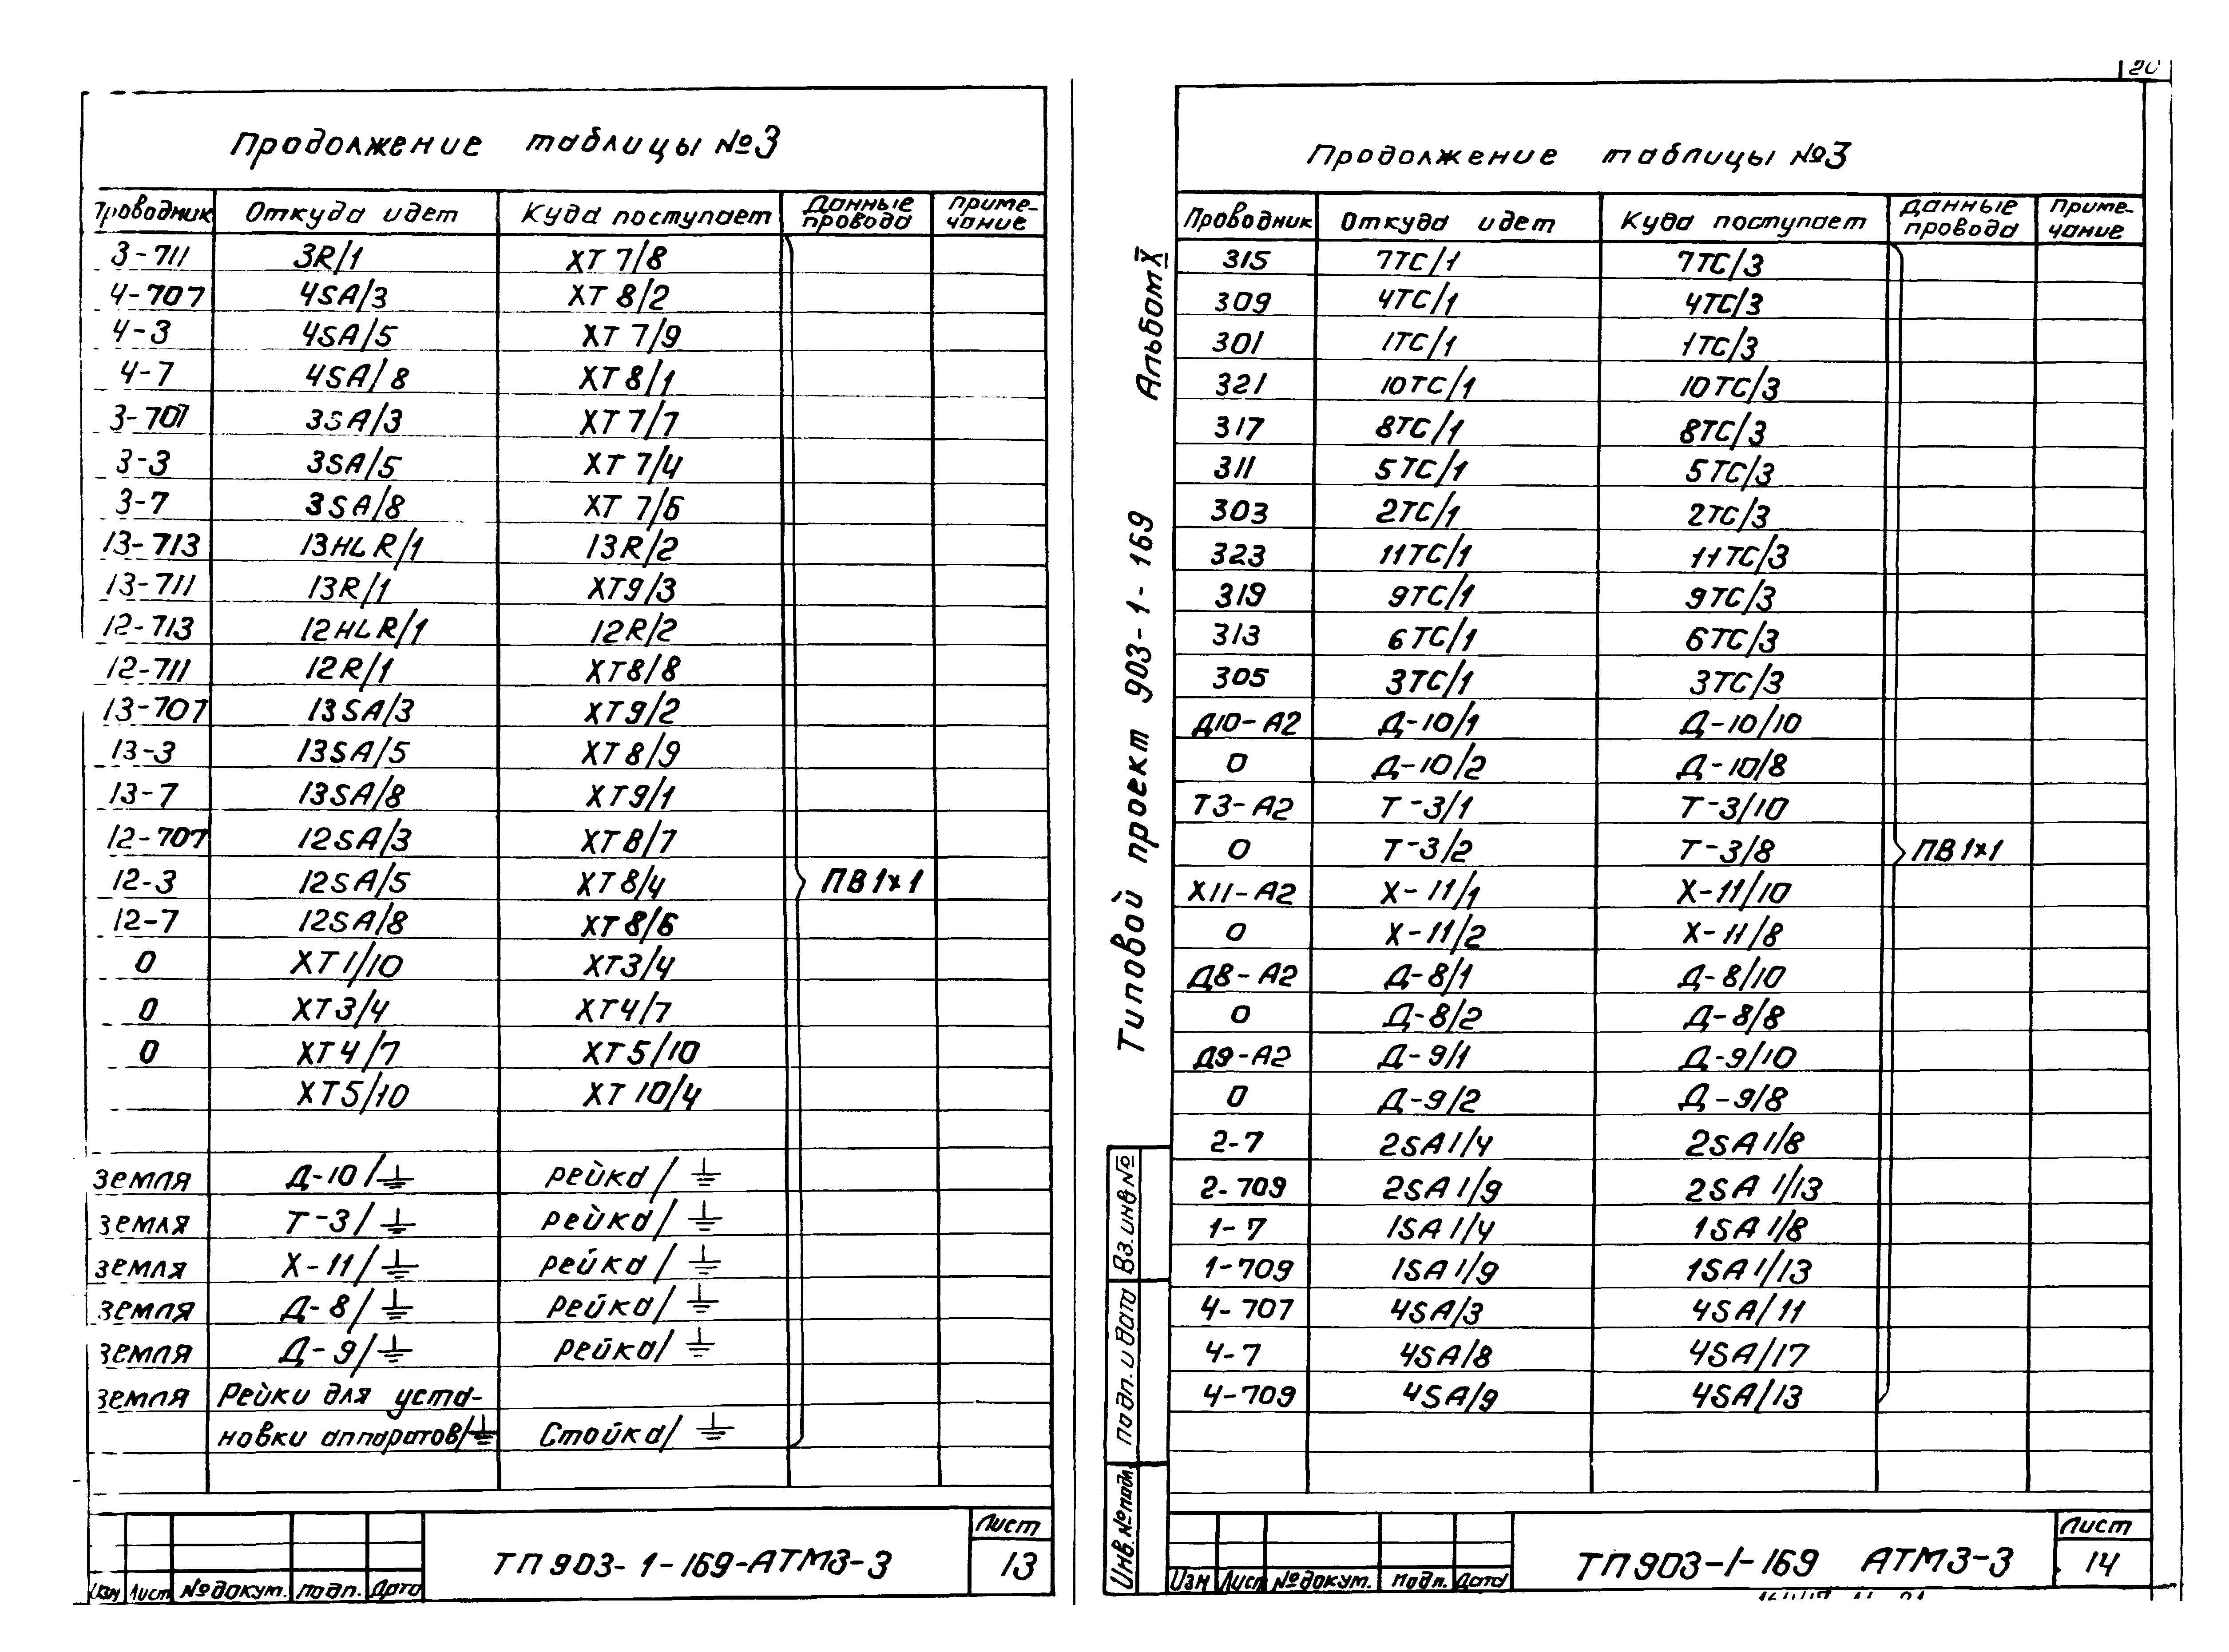 20
Продолжение таблицы №3
Проводник Откуда идет Куда поступает Данные провода Приме-чание
3-711 3R/1 XT 7/8
4-707 4SA/3 XT 8/2
4-3 4SA/5 XT 7/9
4-7 4SA/8 XT 8/1
3-707 3SA/3 XT 7/7
3-3 3SA/5 XT 7/4
3-7 3SA/8 XT 7/6
13-713 13HLR/1 13R/2
13-711 13R/1 XT9/3
12-713 12HLR/1 12R/2
12-711 12R/1 XT8/8
13-707 13SA/3 XT9/2
13-3 13SA/5 XT8/9
13-7 13SA/8 XT9/1
12-707 12SA/3 XT8/7
12-3 12SA/5 XT8/4 ПВ1×1
12-7 12SA/8 XT8/6
0 XT1/10 XT3/4
0 XT3/4 XT4/7
0 XT4/7 XT5/10
XT5/10 XT10/4
земля Д-10/⏚ рейка/⏚
земля Т-3/⏚ рейка/⏚
земля Х-11/⏚ рейка/⏚
земля Д-8/⏚ рейка/⏚
земля Д-9/⏚ рейка/⏚
земля Рейки для уста-
новки аппаратов/⏚ Стойка/⏚
Изм Лист №докум. подп. Дата
ТП903-1-169-АТМ3-3
Лист
13
Альбом X
Типовой проект 903-1-169
Вз.инв№
подп. и дата
Инв.№подл.
Продолжение таблицы №3
Проводник Откуда идет Куда поступает Данные провода Приме-чание
315 7TC/1 7TC/3
309 4TC/1 4TC/3
301 1TC/1 1TC/3
321 10TC/1 10TC/3
317 8TC/1 8TC/3
311 5TC/1 5TC/3
303 2TC/1 2TC/3
323 11TC/1 11TC/3
319 9TC/1 9TC/3
313 6TC/1 6TC/3
305 3TC/1 3TC/3
Д10-А2 Д-10/1 Д-10/10
0 Д-10/2 Д-10/8
Т3-А2 Т-3/1 Т-3/10
0 Т-3/2 Т-3/8 ПВ1×1
Х11-А2 Х-11/1 Х-11/10
0 Х-11/2 Х-11/8
Д8-А2 Д-8/1 Д-8/10
0 Д-8/2 Д-8/8
Д9-А2 Д-9/1 Д-9/10
0 Д-9/2 Д-9/8
2-7 2SA1/4 2SA1/8
2-709 2SA1/9 2SA1/13
1-7 1SA1/4 1SA1/8
1-709 1SA1/9 1SA1/13
4-707 4SA/3 4SA/11
4-7 4SA/8 4SA/17
4-709 4SA/9 4SA/13
Изм Лист №докум. Подп. Дата
ТП903-1-169 АТМ3-3
Лист
14